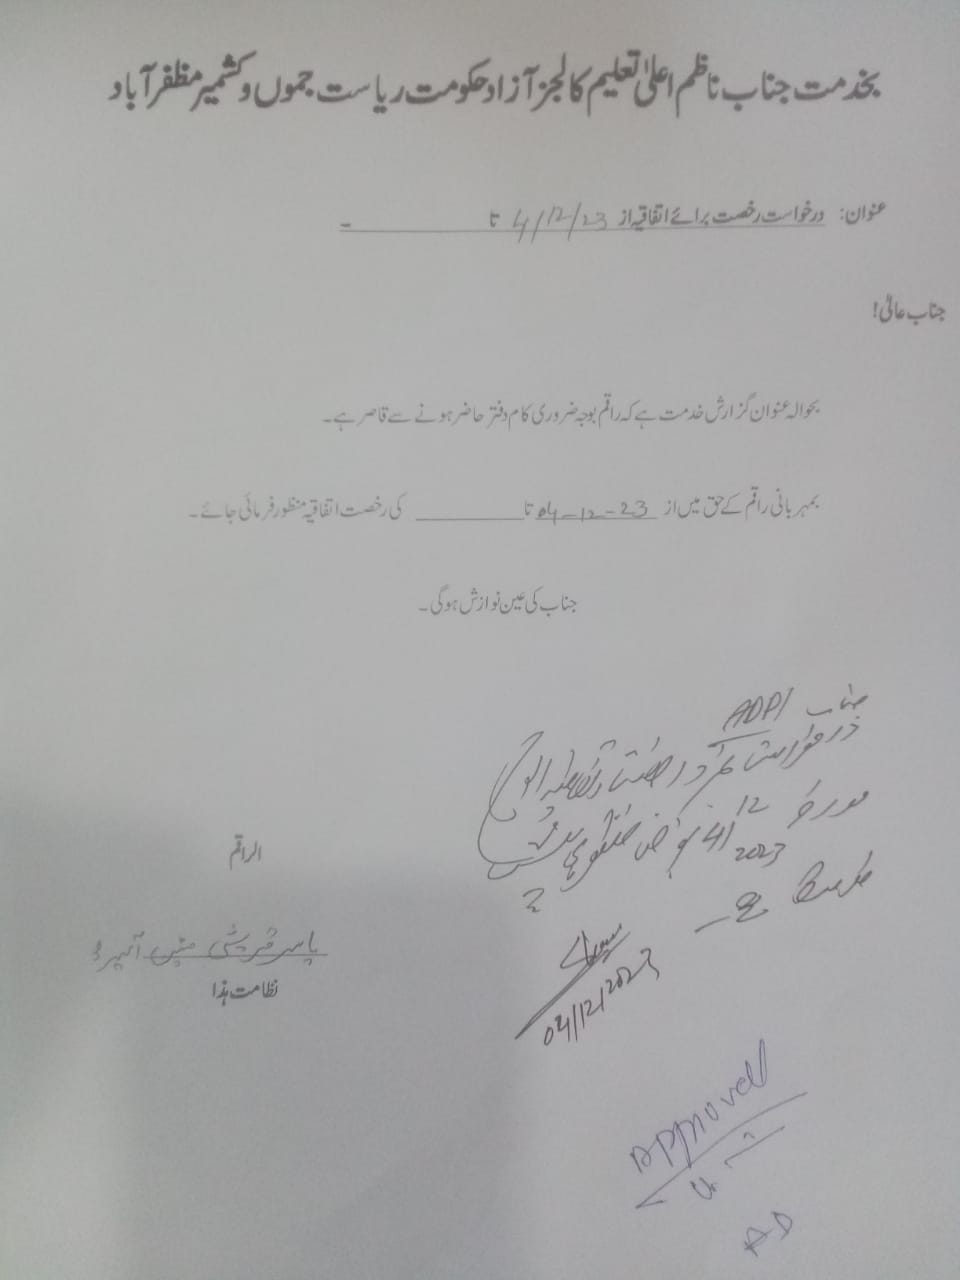 بخدمت جناب ناظم اعلیٰ تعلیم کالجز آزاد حکومت ریاست جموں و کشمیر مظفرآباد
عنوان: درخواست رخصت برائے اتفاقیہ از 4/12/23 تا ________ ۔
جناب عالی!
بحوالہ عنوان گزارش خدمت ہے کہ راقم بوجہ ضروری کام دفتر حاضر ہونے سے قاصر ہے۔
بمہربانی راقم کے حق میں از 04-12-23 تا ________ کی رخصت اتفاقیہ منظور فرمائی جائے۔
جناب کی عین نوازش ہوگی۔
جناب ADPI
درخواست رخصت اتفاقیہ
مورخہ 4/12/2023
ہے
04/12/2023
الراقم
یاسر قریشی
نظامت ہذا
Approved
AD